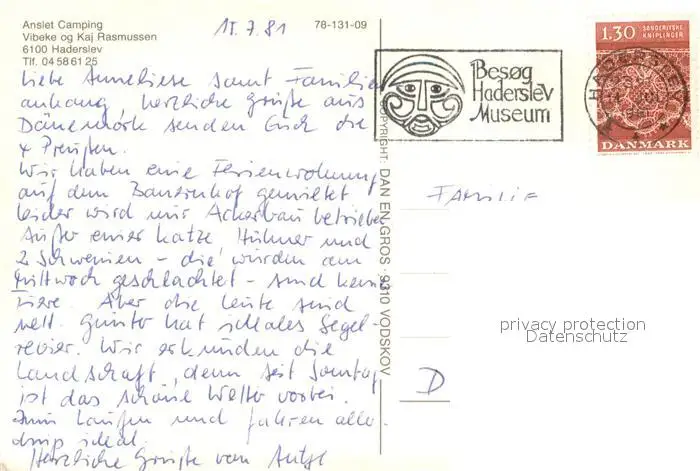 Anslet Camping
Vibeke og Kaj Rasmussen
6100 Haderslev
Tlf. 04 58 61 25
15.7.81
78-131-09
Liebe Anneliese samt Familien
anhang, herzliche Grüße aus
Dänemark senden Euch die
4 Preußen.
Wir haben eine Ferienwohnung
auf dem Bauernhof gemietet
leider wird nur Ackerbau betrieben
Außer einer Katze, Hühner und
2 Schweinen – die wurden am
Mittwoch geschlachtet – sind keine
Tiere. Aber die Leute sind
nett. Günter hat ideales Segel-
revier. Wir erkunden die
Landschaft, denn seit Sonntag
ist das schöne Wetter vorbei.
Zum Laufen und fahren aller-
dings ideal.
Herzliche Grüße von Antje
COPYRIGHT: DAN EN-GROS · 9310 VODSKOV
Besøg
Haderslev
Museum
HADERSLEV
1.30 SØNDERJYSKE
KNIPLINGER
DANMARK
Familie
D
privacy protection
Datenschutz